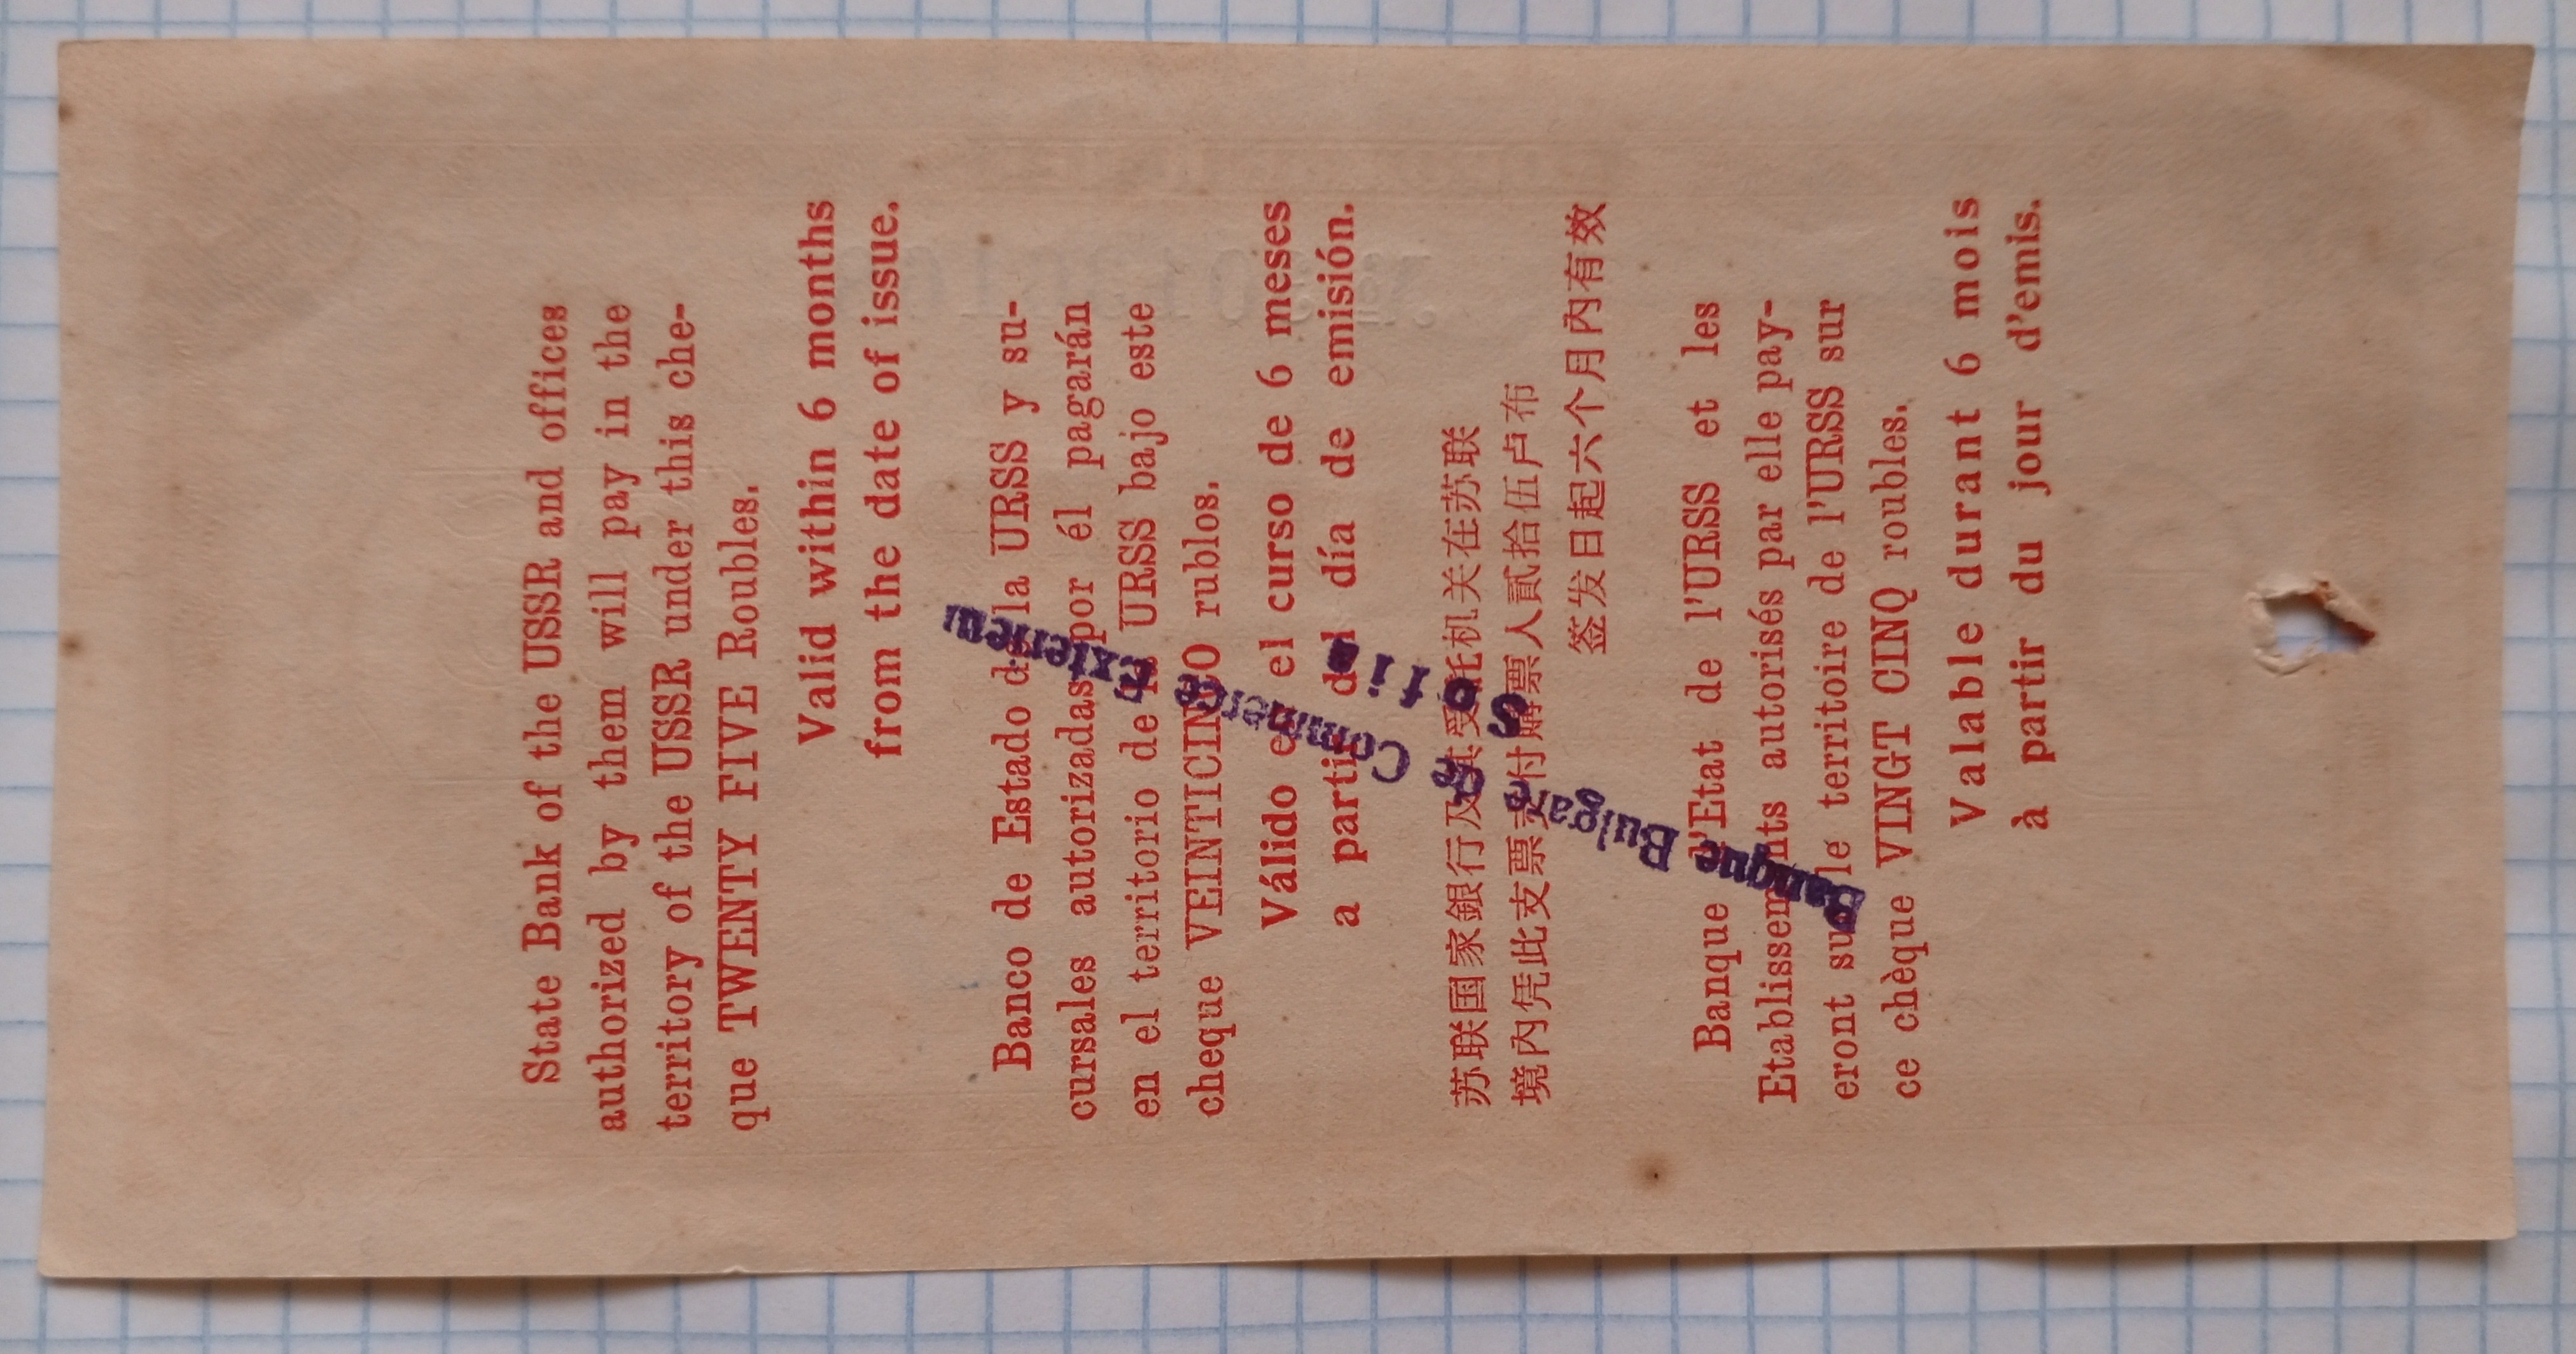 State Bank of the USSR and offices
authorized by them will pay in the
territory of the USSR under this che-
que TWENTY FIVE Roubles.
Valid within 6 months
from the date of issue.
Banco de Estado de la URSS y su-
cursales autorizadas por él pagarán
en el territorio de la URSS bajo este
cheque VEINTICINCO rublos.
Válido en el curso de 6 meses
a partir del día de emisión.
苏联国家銀行及其受托机关在苏联
境內凭此支票支付購票人貳拾伍卢布
签发日起六个月內有效
Banque d'Etat de l'URSS et les
Etablissements autorisés par elle pay-
eront sur le territoire de l'URSS sur
ce chèque VINGT CINQ roubles.
Valable durant 6 mois
à partir du jour d'emis.
Banque Bulgare de Commerce Exterieur
Sofia